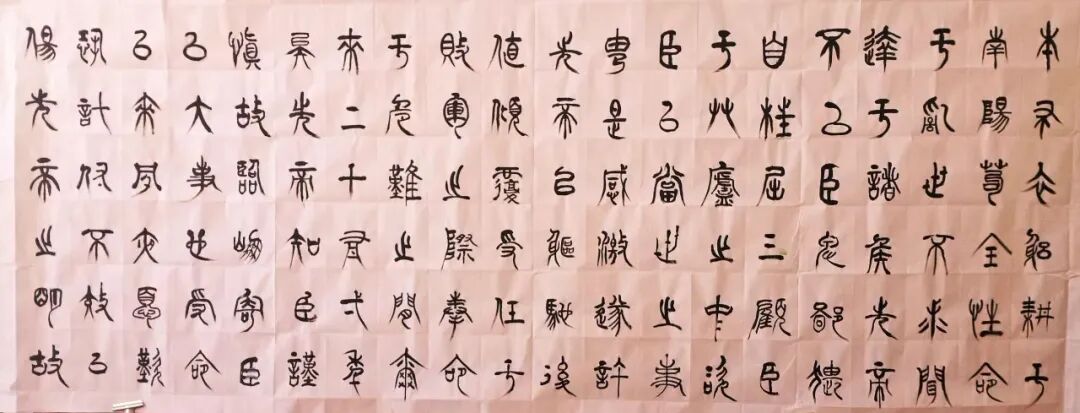 本布衣躬耕于
南陽苟全性命
于亂世不求聞
達于諸侯先帝
不以臣卑鄙猥
自枉屈三顧臣
于艸廬之中諮
臣以當世之事
由是感激遂許
先帝以驅馳後
值傾覆受任于
敗軍之際奉命
于危難之間爾
來二千有弌年
矣先帝知臣謹
慎故臨崩寄臣
以大事也受命
以來夙夜憂歎
恐託付不效以
傷先帝之明故